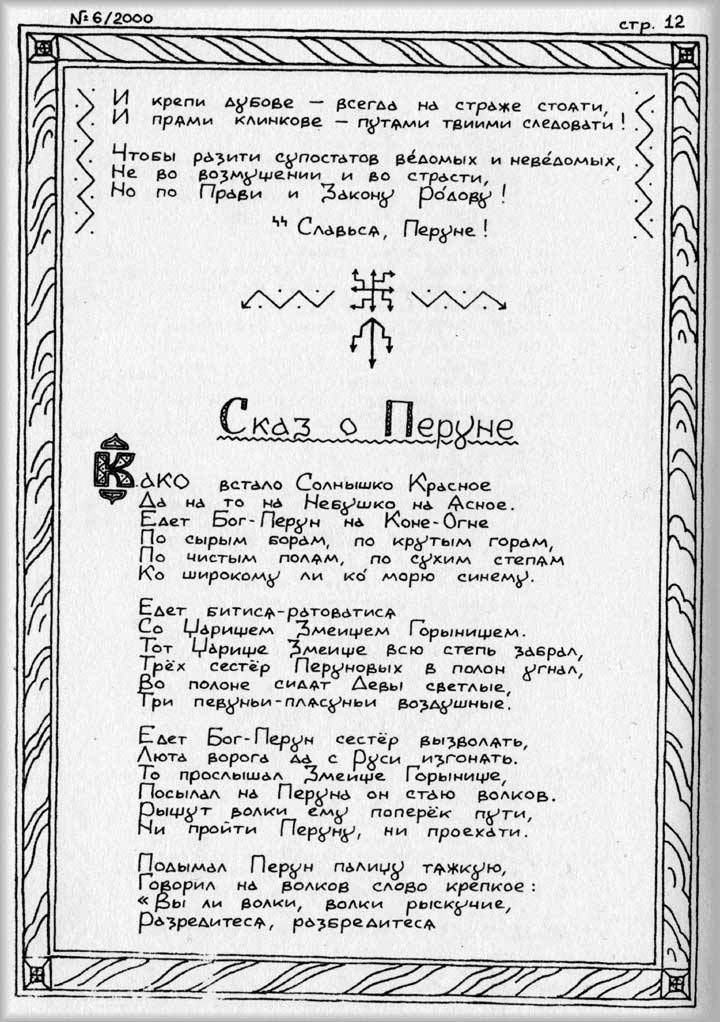 № 6/2000
стр. 12
И крепи дубове – всегда на страже стояти,
И прями клинкове – путями твиими следовати!
Чтобы разити супостатов ве́домых и неве́домых,
Не во возмущении и во страсти,
Но по Прави и Закону Ро́дову!
Славься, Перуне!
Сказ о Перуне
Како встало Солнышко Красное
Да на то на Небушко на Ясное.
Едет Бог-Перун на Коне-Огне
По сырым борам, по крутым горам,
По чистым полям, по сухим степям
Ко широкому ли ко́ морю синему.
Едет битися-ратоватися
Со Царищем Змеищем Горынищем.
Тот Царище Змеище всю степь забрал,
Трёх сестёр Перуновых в полон угнал,
Во полоне сидят Девы светлые,
Три певуньи-плясуньи воздушные.
Едет Бог-Перун сестёр вызволять,
Люта ворога да с Руси изгонять.
То прослышал Змеище Горынище,
Посылал на Перуна он стаю волков.
Рыщут волки ему поперёк пути,
Ни пройти Перуну, ни проехати.
Подымал Перун палицу тяжкую,
Говорил на волков слово крепкое:
«Вы ли волки, волки рыскучие,
Разредитеся, разбредитеся